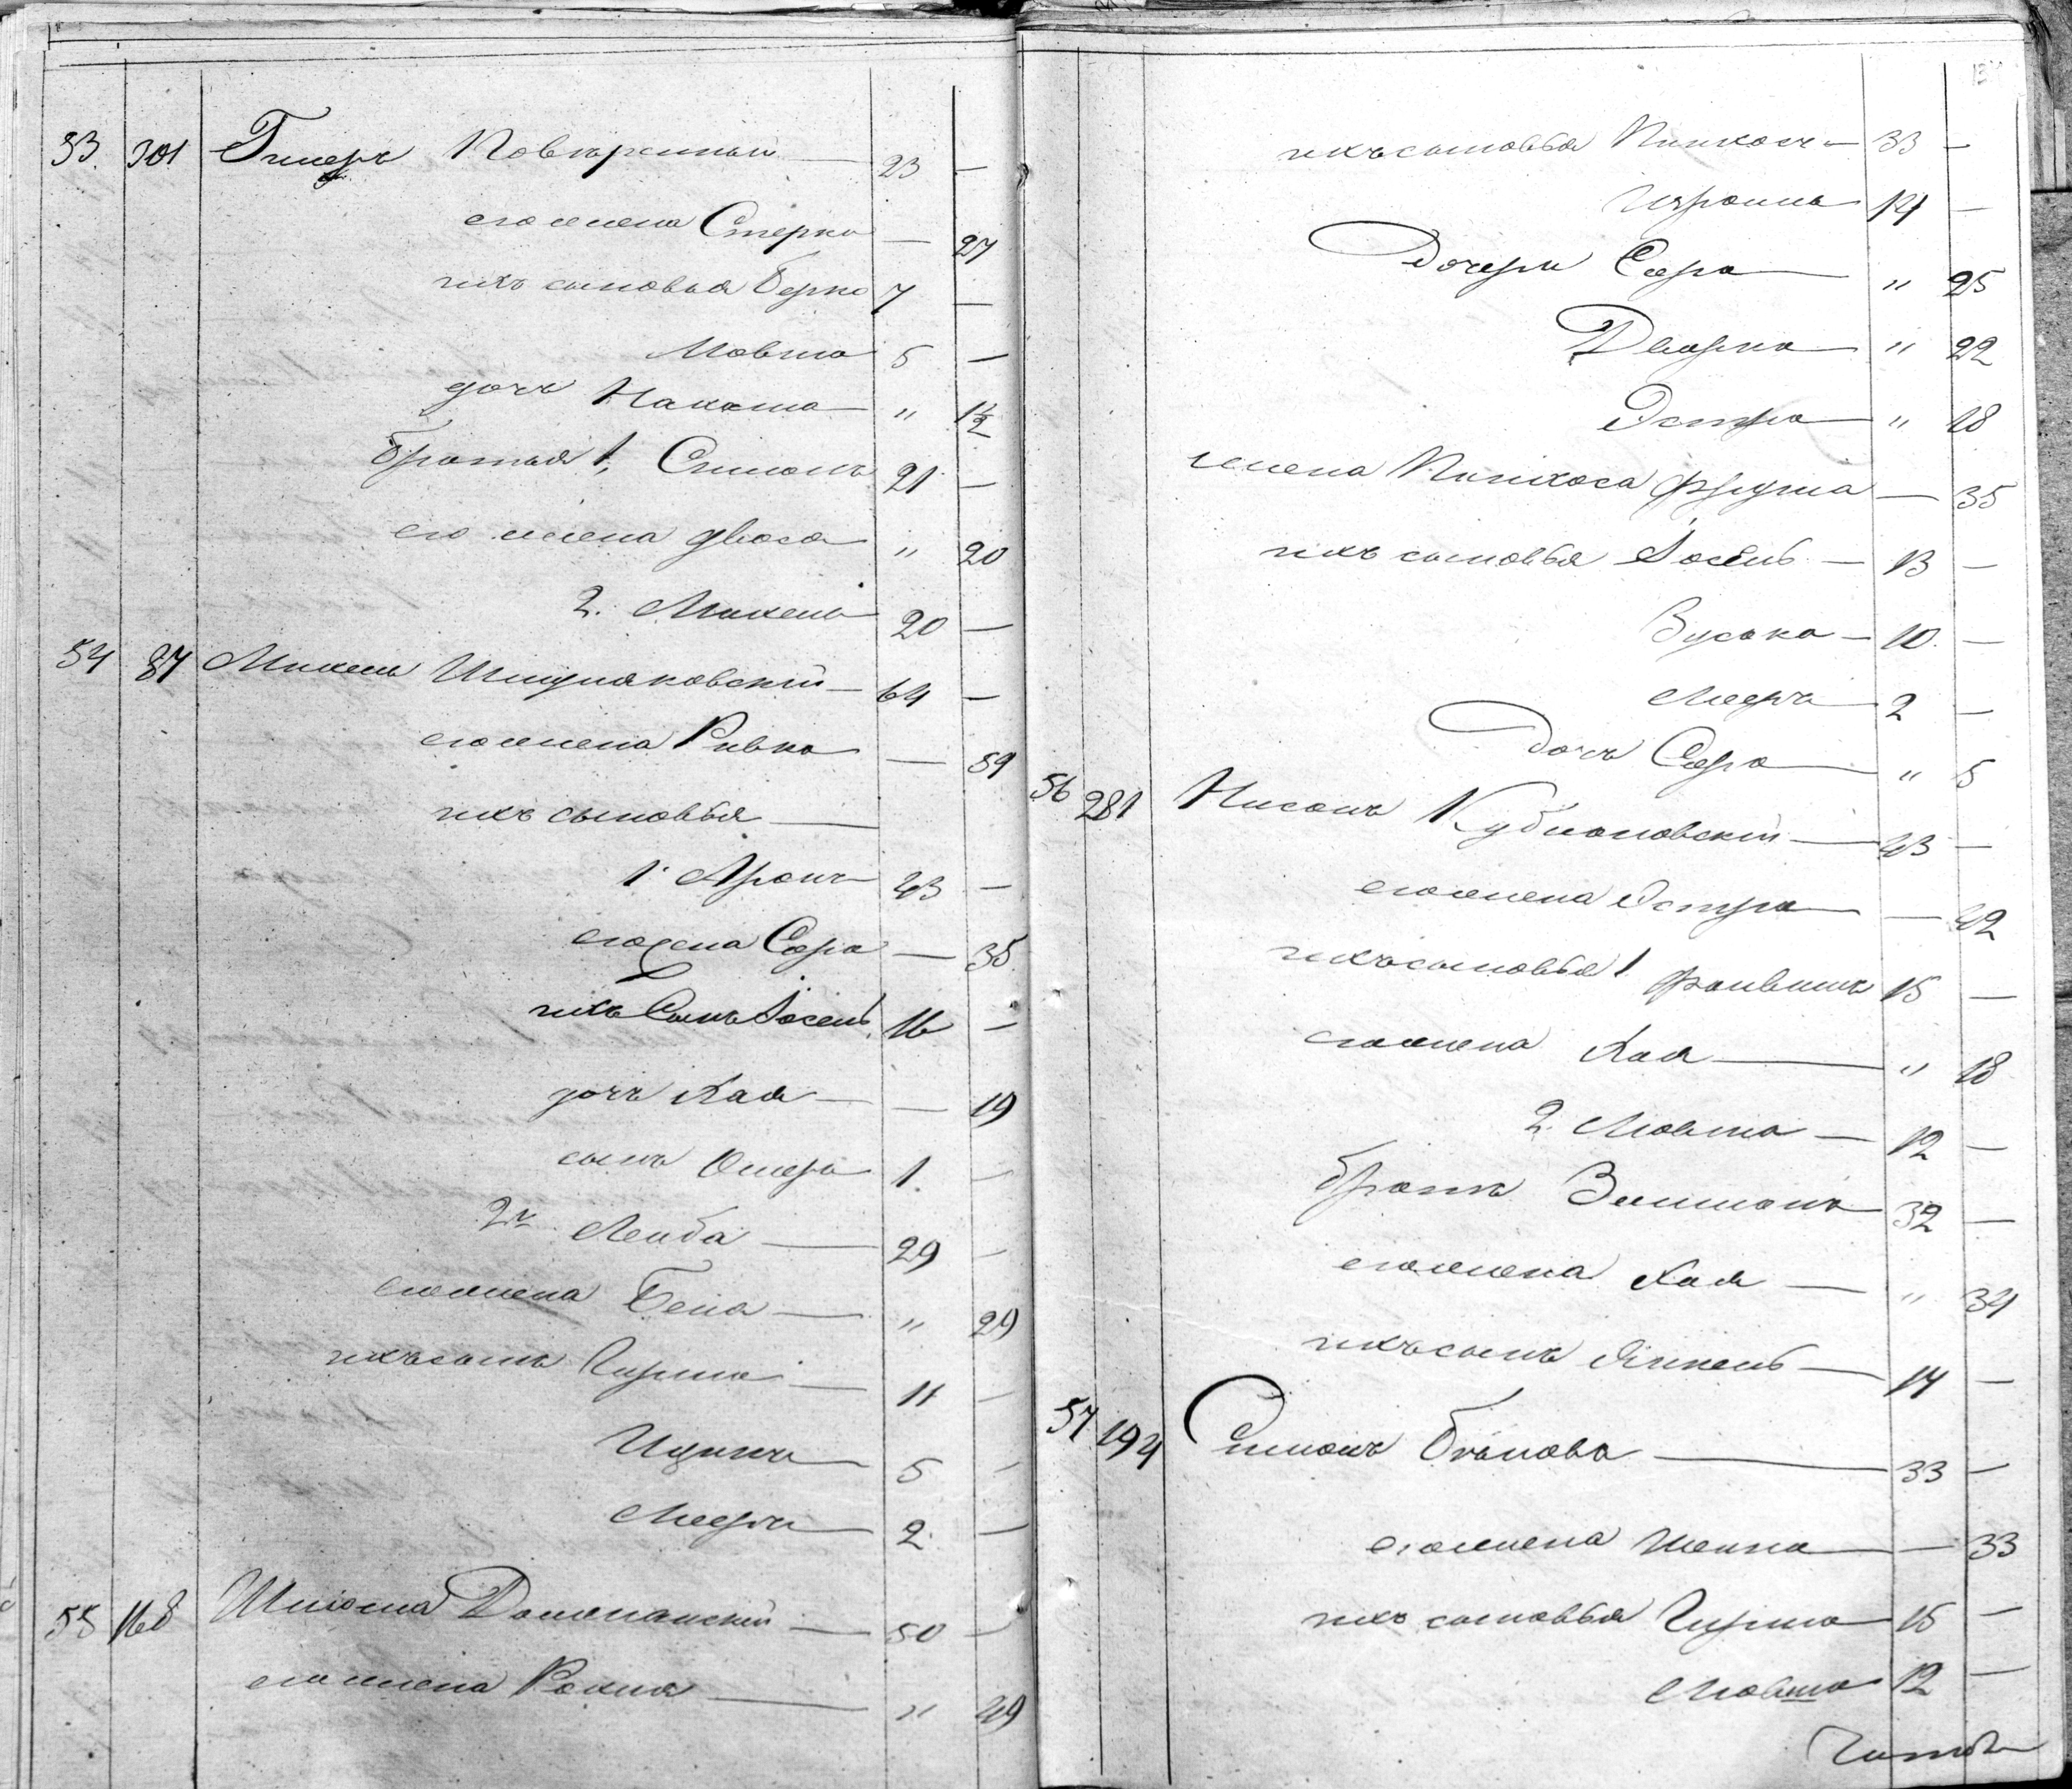 53. 301 Гилеръ Повѣренный — 23 —
его жена Стерка — 27
ихъ сыновья Берко 7 —
Мовша 5 —
дочь Нахама „ 1½
Братья 1, Симонъ 21 —
его жена Двося „ 20
2. Михель 20 —
54 87 Михель Шмуляковскій — 64 —
его жена Ривка — 59
ихъ сыновья —
1. Аронъ 43 —
его жена Сора — 35
ихъ Сынъ Іосель 16 —
дочь Хая — — 19
сынъ Ошеръ 1. —
2й Лейба — 29 —
его жена Бейла — „ 29
ихъ сынъ Гирша — 11 —
Ицикъ 5 —
Мееръ 2. —
55 168 Шлиома Доманскій — 50 —
его жена Рохля — „ 49
ихъ сыновья Пинхосъ — 33 —
Изроиль 14 —
Дочери Сора — „ 25
Дворка „ 22
Эстра „ 18
жена Пинхоса Фрума — 35
ихъ сыновья Іосель — 13 —
Зуська — 10. —
Мееръ 2 —
Дочь Сора „ 5
56 281 Нисонъ Кубиловскій — 43 —
его жена Эстра — 42
ихъ сыновья 1 Файвишъ 15 —
его жена Хая — „ 18
2. Мовша — 12 —
братъ Зельманъ 32 —
его жена Хая — „ 34
ихъ сынъ Янкель — 14 —
57 194 Симонъ — 33 —
его жена Шейна — 33
ихъ сыновья Гирша 15 —
Мовша 12 —